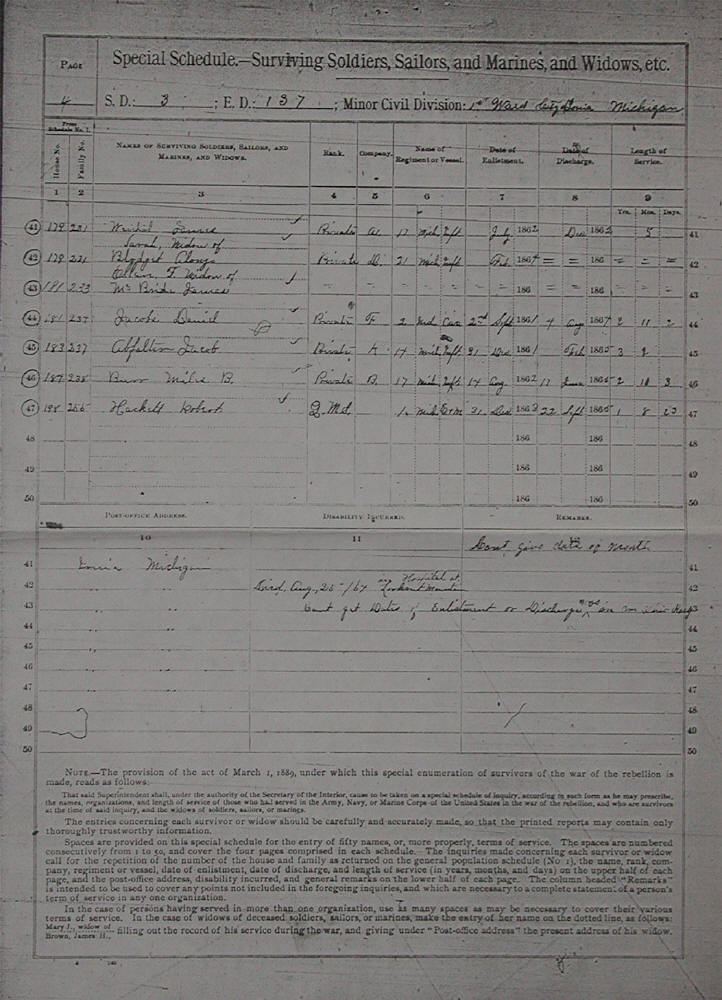 PAGE
4
Special Schedule.—Surviving Soldiers, Sailors, and Marines, and Widows, etc.
S. D.: 3 ; E. D.: 137 ; Minor Civil Division: 1st Ward City Ionia Michigan
From Schedule No. 1.
House No.
Family No.
NAMES OF SURVIVING SOLDIERS, SAILORS, AND MARINES, AND WIDOWS.
Rank.
Company.
Name of Regiment or Vessel.
Date of Enlistment.
Date of Discharge.
Length of Service.
1 2 3 4 5 6 7 8 9
Yrs. Mos. Days.
41 179 231 James Private 17 Mich Inft July 1862 Dec 1862 5 41
Sarah, Widow of
42 179 231 Blodget Alonzo Private 21 Mich Inft Feb 1864 = = 186 = = = 42
Ellen, F. Widow of
43 181 233 McBride James 186 186 43
44 181 237 Jacobs Daniel Private F 2 Mich Cav 2nd Sept 1861 4 Aug 1864 2 11 2 44
45 183 237 Jacob Private 14 Mich Inft 31 Dec 1861 Feb 1865 3 2 45
46 187 238 Burr Miles B. Private B. 17 Mich Inft 14 Aug 1862 17 June 1865 2 10 3 46
47 198 255 Hackett Robert Q. M. S. 1 Mich E & M 31 Dec 1863 22 Sept 1865 1 8 23 47
48 186 186 48
49 186 186 49
50 186 186 50
POST-OFFICE ADDRESS. DISABILITY INCURRED. REMARKS.
10 11
41 Ionia Michigan Cant give date of month 41
42 " " Died, Aug, 25-/64 in Hospital at Lookout Mountain 42
43 " " Cant get Dates of Enlistment or Discharge 43
44 " " 44
45 " " 45
46 " " 46
47 " " 47
48 48
49 49
50 50
NOTE.—The provision of the act of March 1, 1889, under which this special enumeration of survivors of the war of the rebellion is
made, reads as follows:
That said Superintendent shall, under the authority of the Secretary of the Interior, cause to be taken on a special schedule of inquiry, according to such form as he may prescribe,
the names, organizations, and length of service of those who had served in the Army, Navy, or Marine Corps of the United States in the war of the rebellion, and who are survivors
at the time of said inquiry, and the widows of soldiers, sailors, or marines.
The entries concerning each survivor or widow should be carefully and accurately made, so that the printed reports may contain only
thoroughly trustworthy information.
Spaces are provided on this special schedule for the entry of fifty names, or, more properly, terms of service. The spaces are numbered
consecutively from 1 to 50, and cover the four pages comprised in each schedule. The inquiries made concerning each survivor or widow
call for the repetition of the number of the house and family as returned on the general population schedule (No 1), the name, rank, com-
pany, regiment or vessel, date of enlistment, date of discharge, and length of service (in years, months, and days) on the upper half of each
page, and the post-office address, disability incurred, and general remarks on the lower half of each page. The column headed "Remarks"
is intended to be used to cover any points not included in the foregoing inquiries, and which are necessary to a complete statement of a person's
term of service in any one organization.
In the case of persons having served in more than one organization, use as many spaces as may be necessary to cover their various
terms of service. In the case of widows of deceased soldiers, sailors, or marines, make the entry of her name on the dotted line, as follows:
Mary J., widow of
Brown, James H., filling out the record of his service during the war, and giving under "Post-office address" the present address of his widow.